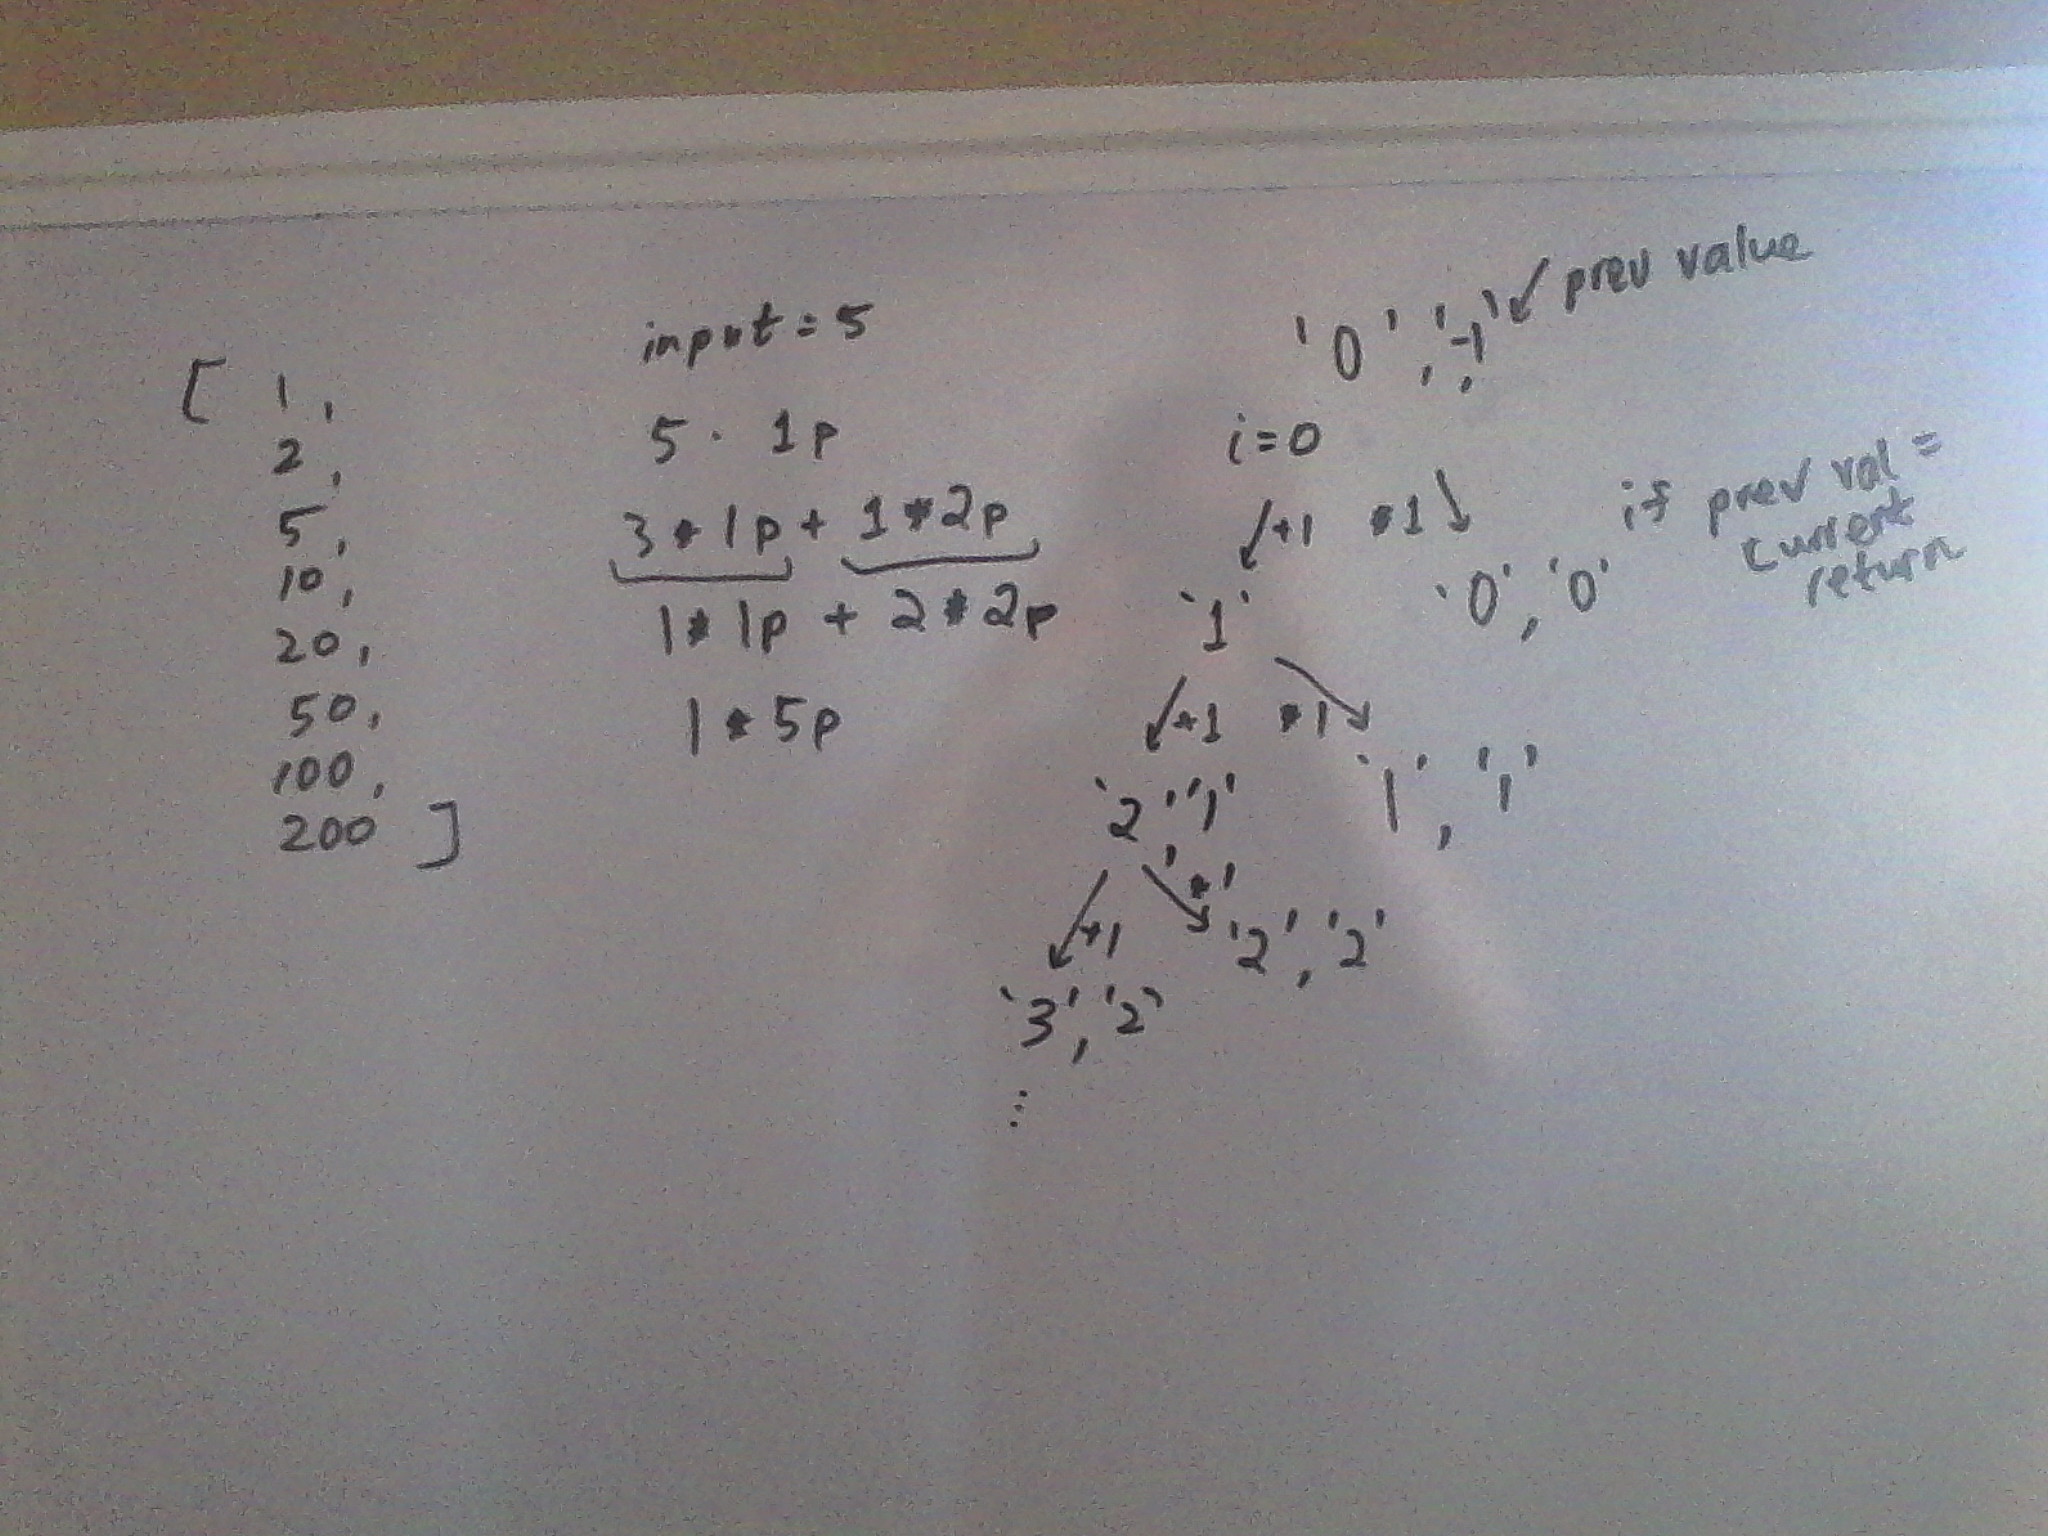 [ 1,
2,
5,
10,
20,
50,
100,
200 ]
input = 5
5 · 1p
3 * 1p + 1 * 2p
1 * 1p + 2 * 2p
1 * 5p
'0', '-1' ↙ prev value
i=0
↙ +1 *1 ↘
'1' '0', '0' if prev val =
current
return
↙ +1 *1 ↘
'2', '1' '1', '1'
↙ +1 ↘ *1
'3', '2' '2', '2'
⋮